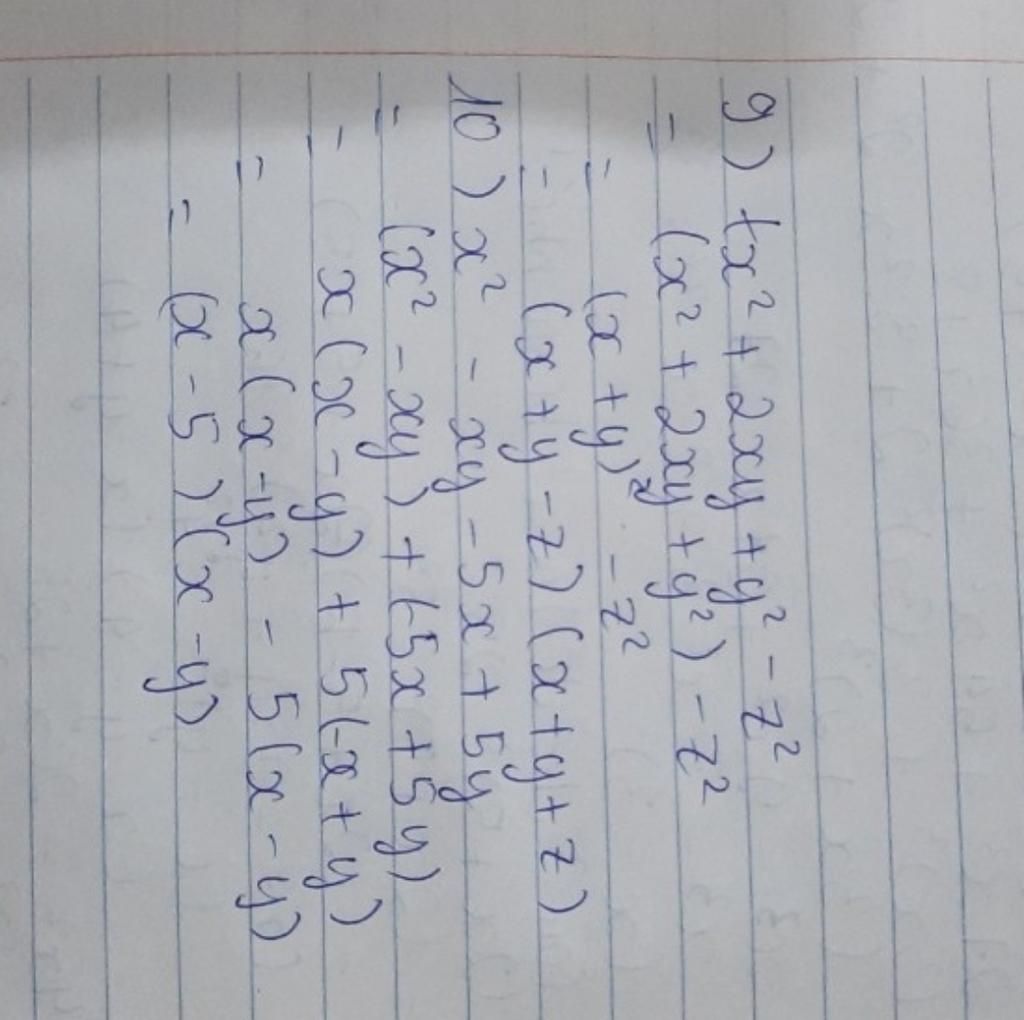 9) x² + 2xy + y² - z²
= (x² + 2xy + y²) - z²
= (x + y)² - z²
= (x + y - z)(x + y + z)
10) x² - xy - 5x + 5y
= (x² - xy) + (-5x + 5y)
= x(x - y) + 5(-x + y)
= x(x - y) - 5(x - y)
= (x - 5)(x - y)